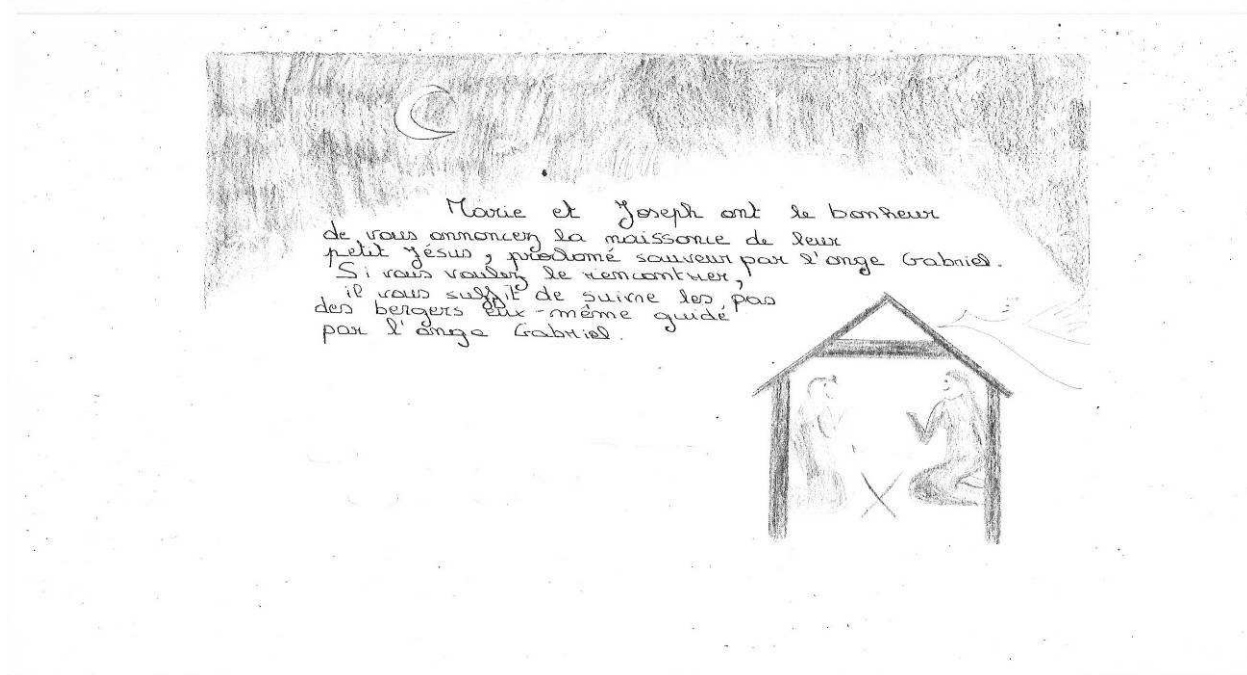 Marie et Joseph ont le bonheur
de vous annoncez la naissance de leur
petit Jésus, proclamé sauveur par l'ange Gabriel.
Si vous voulez le rencontrer,
il vous suffit de suivre les pas
des bergers eux-même guidé
par l'ange Gabriel.